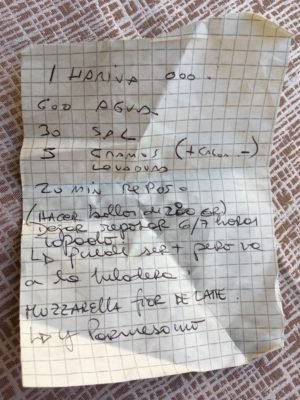 1 HARINA 000.
600 AGUA
30 SAL
5 GRAMOS (+CALOR -)
LEVADURA
20 MIN REPOSO
(HACER bollos de 280 GR)
DEJAR reposar 6/7 horas
TAPADO
↳ puede ser + pero va
a la heladera.
MUZZARELLA FIOR DE LATE.
↳ y Parmesano